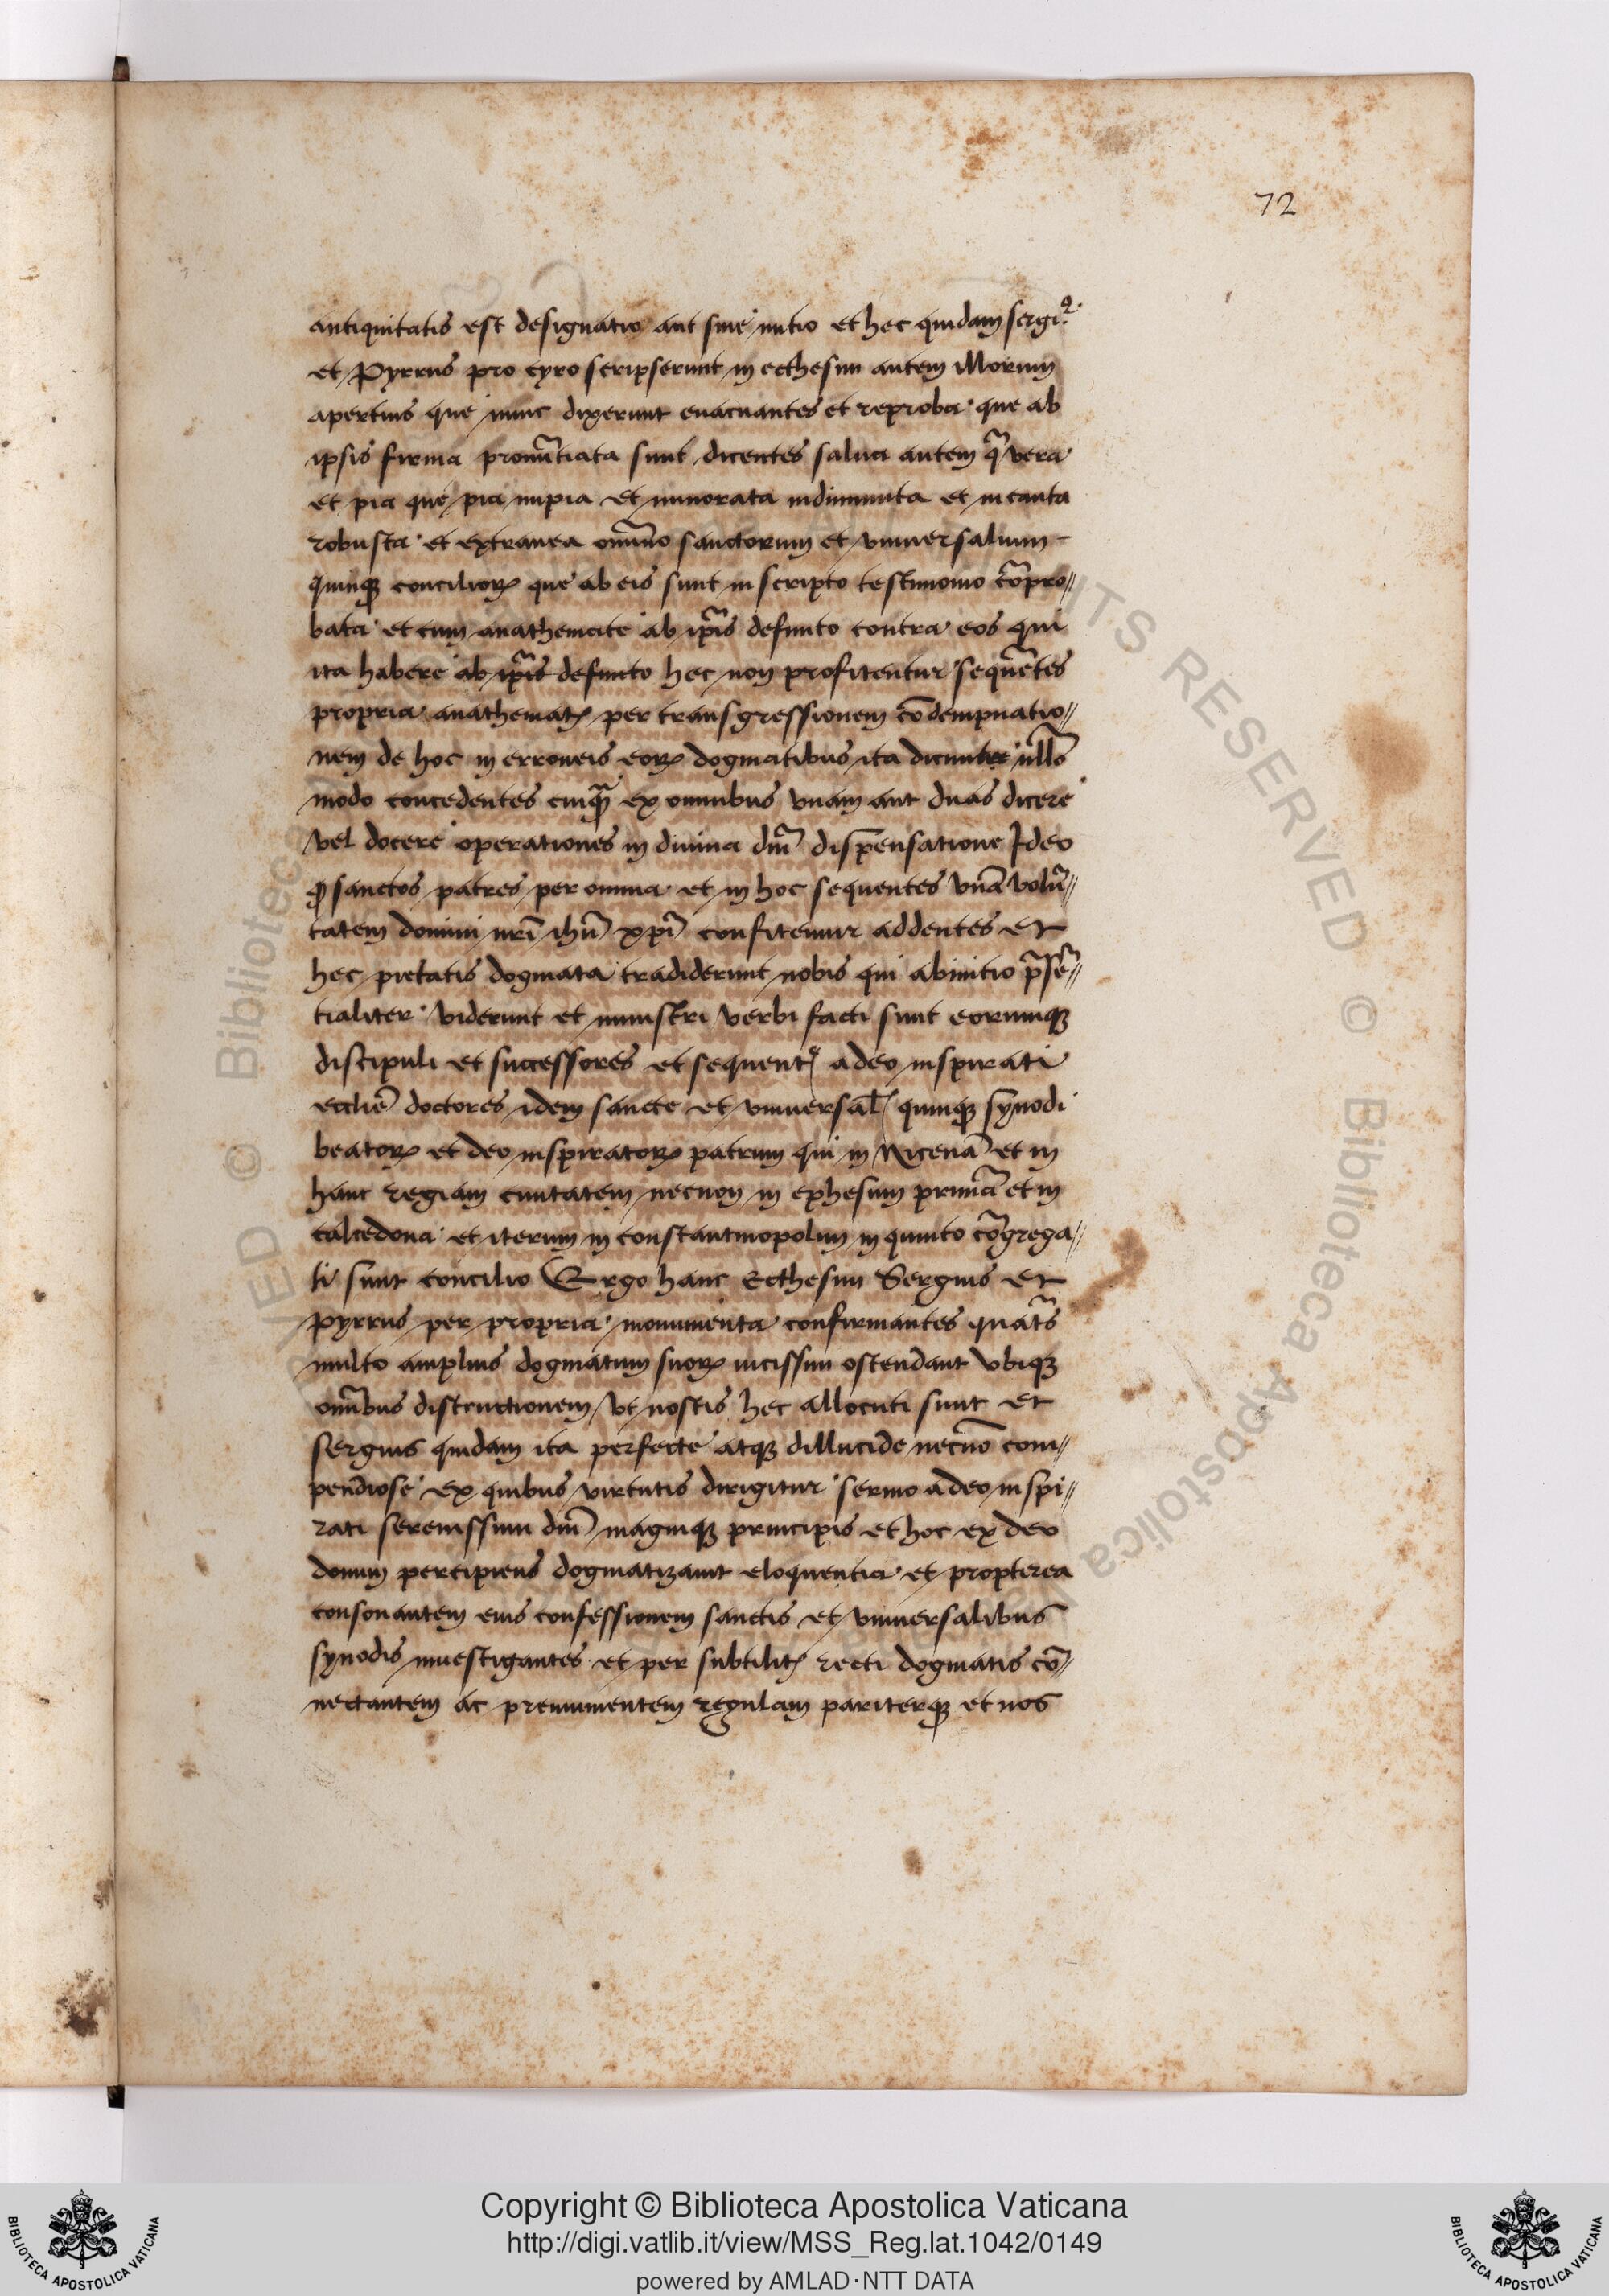 72
antiquitatis est designatio aut sine initio et hec quidam sergi9
et Pyrrus pro cyro scripserunt in ecthesim autem illorum
apertius que nunc dixerunt euacuantes et reproba que ab
ipsis firma pronūtiata sunt dicentes salua autem q̄ vera
et pia que pia impia et minorata indiminuta et incauta
robusta et extranea om̄ino sanctorum et vniuersalium
quinqꝫ concilioꝝ que ab eis sunt in scripto testimonio cōpro//
bata et cum anathemate ab ip̄is definito contra eos qui
ita habere ab ip̄is definito hec non profitentur sequētes
propria anathematꝭ per transgressionem cōdempnatio//
nem de hoc in erroneis eoꝝ dogmatibus ita dicunt nllō
modo concedentes cuiqꝫ̄ ex omnibus vnam aut duas dicere
vel docere operationes in diuina dn̄i dispensatione Ideo
sanctos patres per omnia et in hoc sequentes vnā volū//
tatem domini nr̄i ihū xp̄i confitemur addentes et
hec pietatis dogmata tradiderunt nobis qui abinitio p̄sē//
tialiter viderunt et ministri verbi facti sunt eorumqꝫ
discipuli et successores et sequentꝭ adeo inspirati
ecclīe doctores idem sancte et vniuersał quinqꝫ synodi
beatoꝝ et deo inspiratoꝝ patrum qui in Nicenā et in
hanc regiam ciuitatem necnon in ephesum primā et in
calcedona et iterum in constantinopolim in quinto cōgrega//
ti sunt concilio Ergo hanc Ecthesim Sergius et
Pyrrus per propria monumenta confirmantes quat̄s
multo amplius dogmatum suoꝝ uicissim ostendant vbiqꝫ
om̄ibus distructionem vt nostis hec allocuti sunt et
sergius quidam ita perfecte atqꝫ dillucide necnō com//
pendiose ex quibus virtutis dirigitur sermo adeo inspi//
rati serenissimi dn̄i magniqꝫ principis et hoc ex deo
donum percipiens dogmatizauit eloquentia et propterea
consonantem eius confessionem sanctis et vniuersalibus
synodis inuestigantes et per subtilitꝭ recti dogmatis cō//
nectantem ac premumentem regulam pariterqꝫ et nos
Copyright © Biblioteca Apostolica Vaticana
http://digi.vatlib.it/view/MSS_Reg.lat.1042/0149
powered by AMLAD·NTT DATA